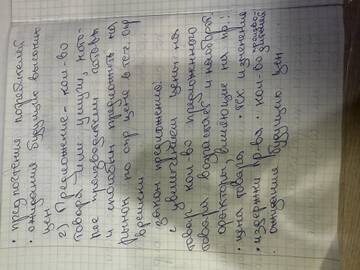 • предпочтение потребителей
• ожидания будущих высоких
цен
2) Предложение - кол-во
товара или услуги, кото-
рое производители готовы
и способны предложить на
рынок по опр цене в теч. опр
времени
Закон предложения:
с увеличением цены на
товар кол-во предложенного
товара возрастает и наоборот.
Факторы, влияющие на пр.:
• цена товара • тех изменение
• издержки пр-ва • кол-во
ожидания будущих цен